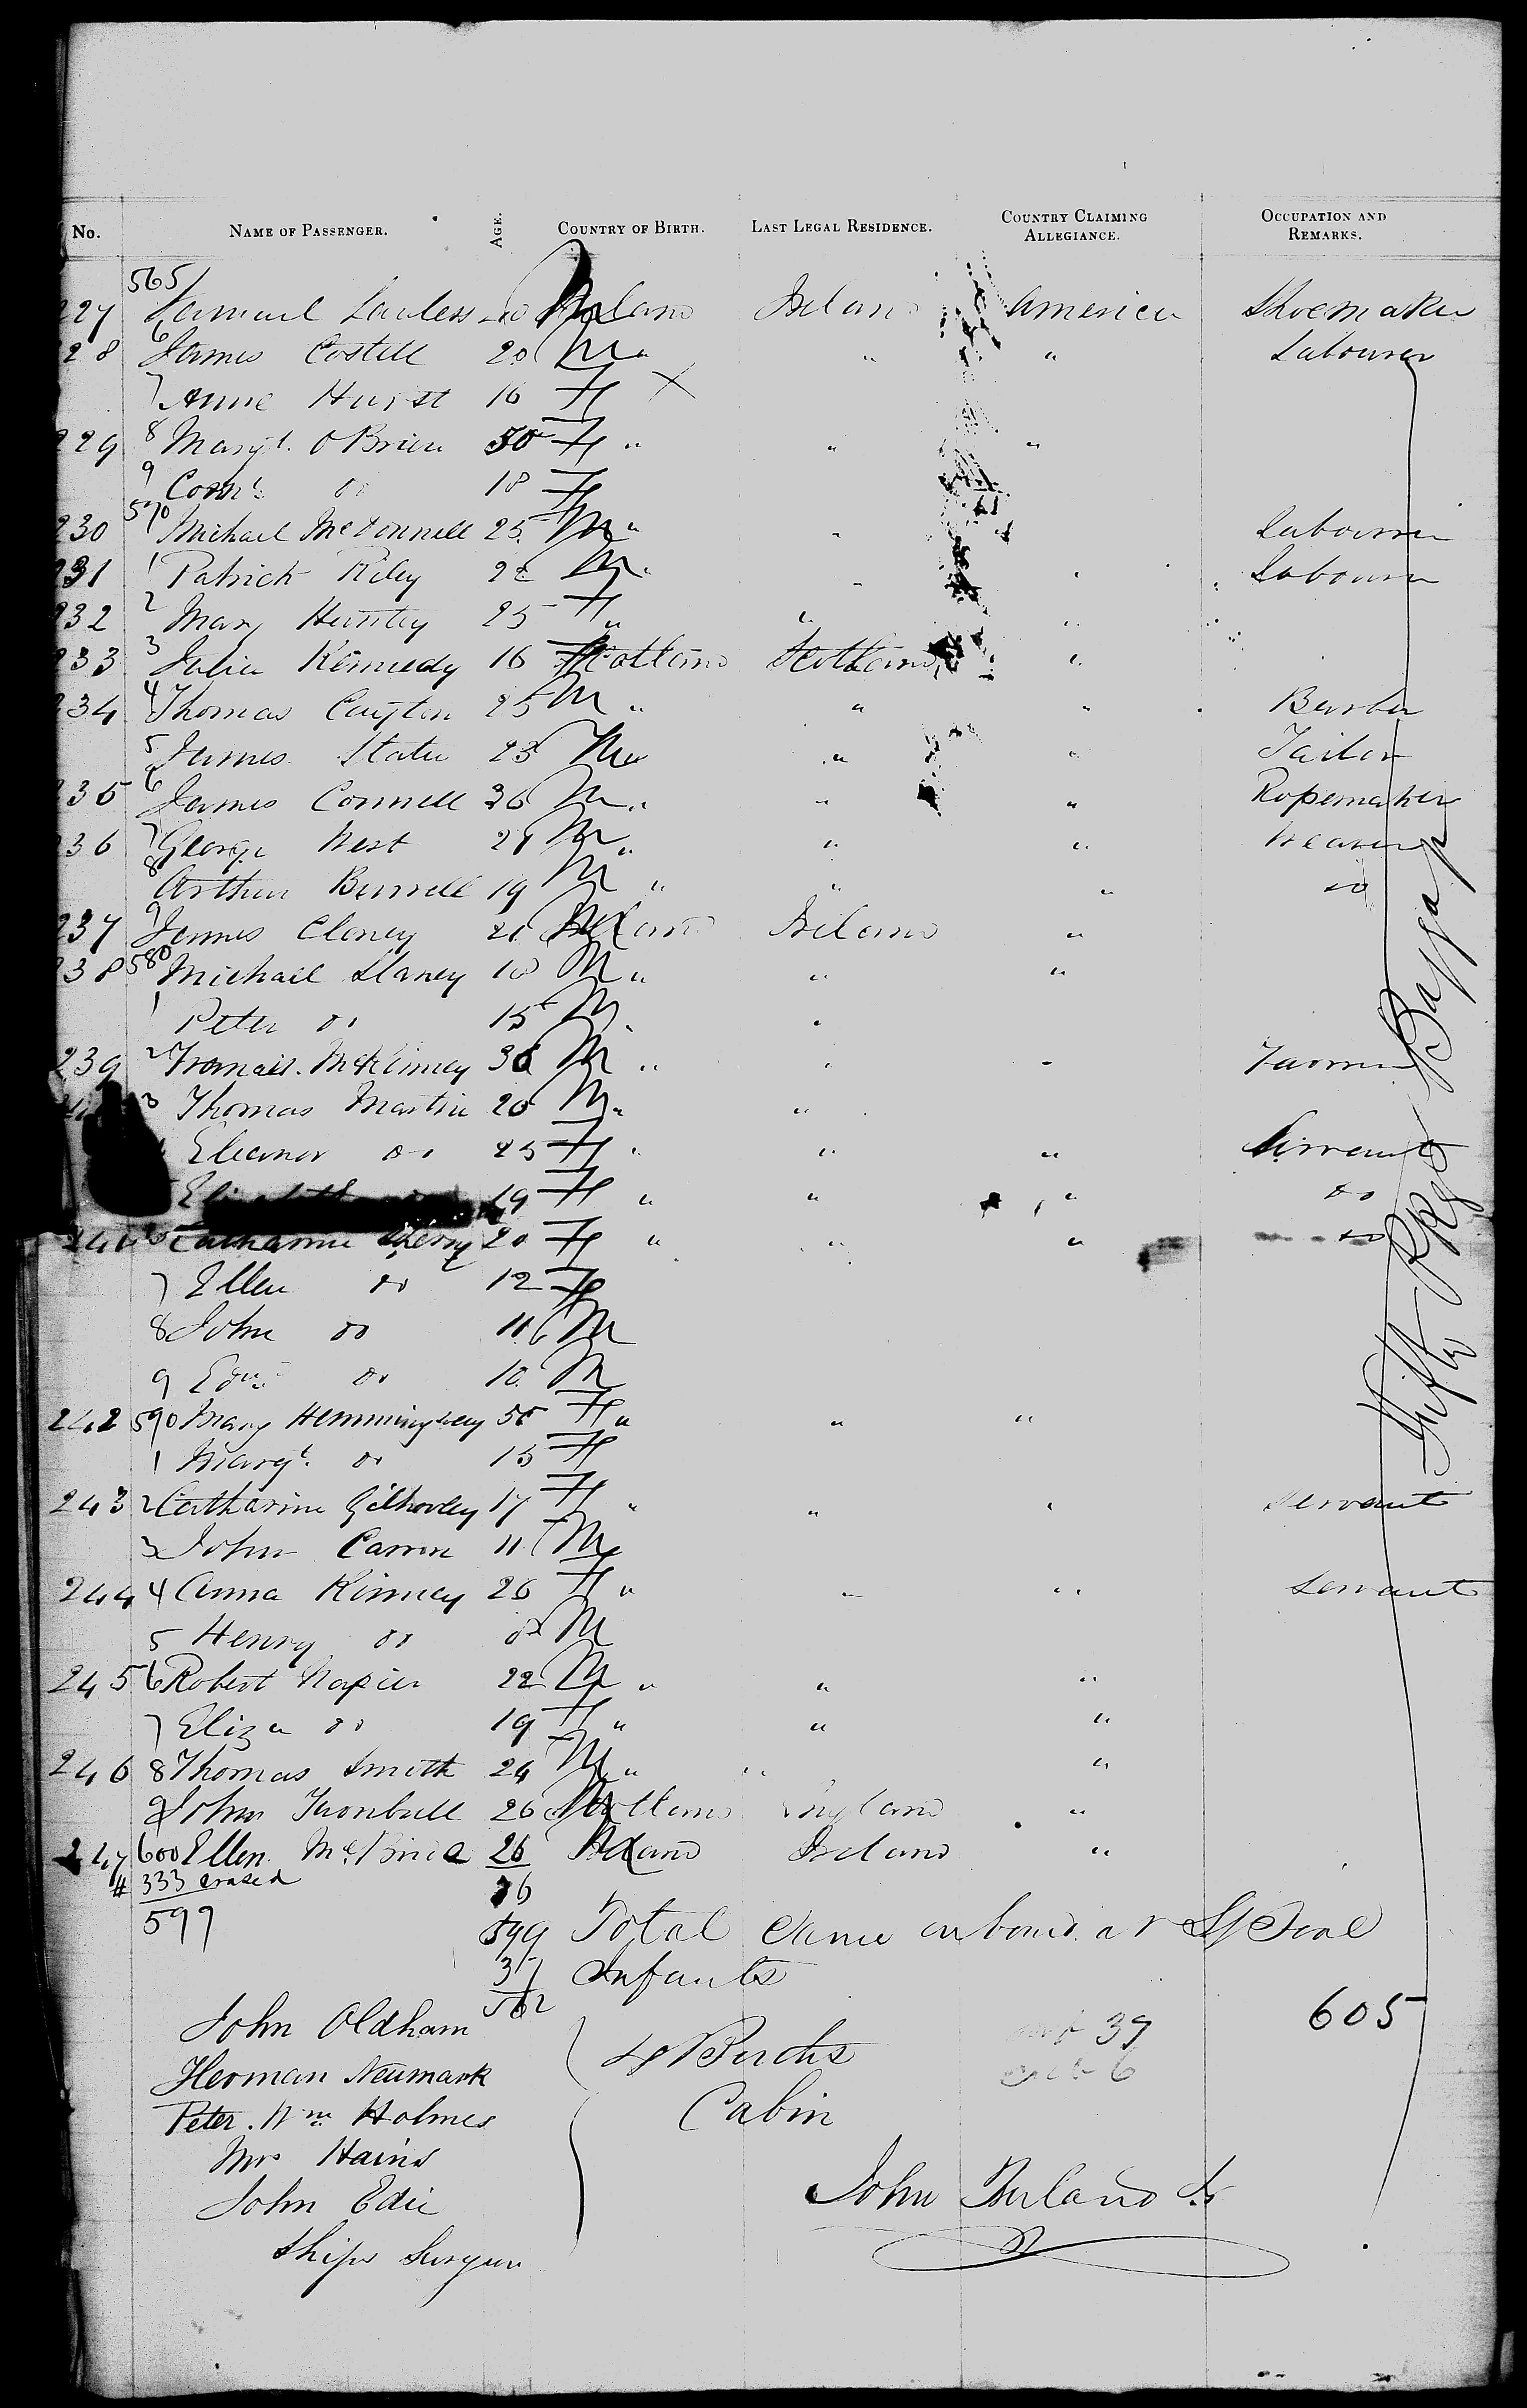 No. NAME OF PASSENGER. AGE. COUNTRY OF BIRTH. LAST LEGAL RESIDENCE. COUNTRY CLAIMING ALLEGIANCE. OCCUPATION AND REMARKS.
565
227 Samuel Lawless 20 Ireland Ireland America Shoemaker
228 6 James Costell 20 M " " " Labourer
7 Anne Hurst 16 F X
229 8 Margt. O Brien 50 F " " "
9 Cornl. do 18 F
230 570 Michael McDonnell 25 M " " Labourer
231 1 Patrick Riley 22 M " " " Labourer
232 2 Mary Huntley 25 F " " "
233 3 Julia Kennedy 16 F Scotland Scotland "
234 4 Thomas Cayton 25 M " " " Barber
5 James Slater 23 M " " " Tailor
235 6 James Connell 36 M " " " Ropemaker
236 7 George West 21 M " " " Weaver
8 Arthur Burrell 19 M " " " do
237 9 James Claney 21 M Ireland Ireland "
238 580 Michael Slaney 18 M " " "
1 Peter do 15 M " "
239 2 McKinney 36 M " " " Farmer
3 Thomas Martin 20 M " "
Eleanor do 25 F " " " Servant
19 F " " " do
6 Catharine Sherry 20 F " " " do
7 Ellen do 12 F
8 John do 11 M
9 Edwd. do 10 M
242 590 Mary Hemmingway 55 F " " "
1 Margt. do 15 F
243 2 Catharine Gilhooley 17 F " " " Servant
3 John Carron 11 M
244 4 Anna Kinney 26 F " " " Servant
5 Henry do M
245 6 Robert Napier 22 M " " "
7 Eliza do 19 F " " "
246 8 Thomas Smith 24 M " " "
9 John Turnbull 26 M Scotland England "
247 600 Ellen McBride 26 Ireland Ireland "
# 333 erased 26
599 599 Total Came on board at
37 Infants
562
John Oldham
Herman Neumark
Peter. Wm. Holmes
Mrs Hains
John Edie
Ships Surgeon
Births
Cabin
37
6
605
John Ireland
Baggage